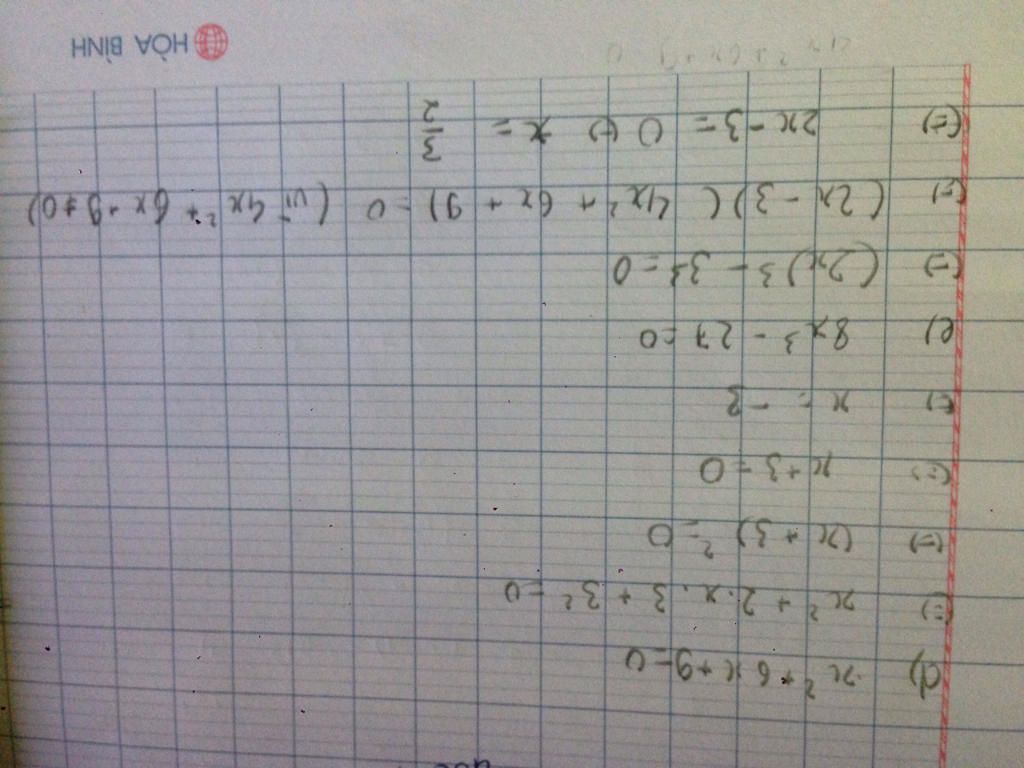 d) x² + 6x + 9 = 0
(=) x² + 2.x.3 + 3² = 0
(=) (x + 3)² = 0
(=) x + 3 = 0
(=) x = -3
e) 8x³ - 27 = 0
(=) (2x)³ - 3³ = 0
(=) (2x - 3)(4x² + 6x + 9) = 0 (vì 4x² + 6x + 9 ≠ 0)
(=) 2x - 3 = 0 (=) x = 3/2
HÒA BÌNH